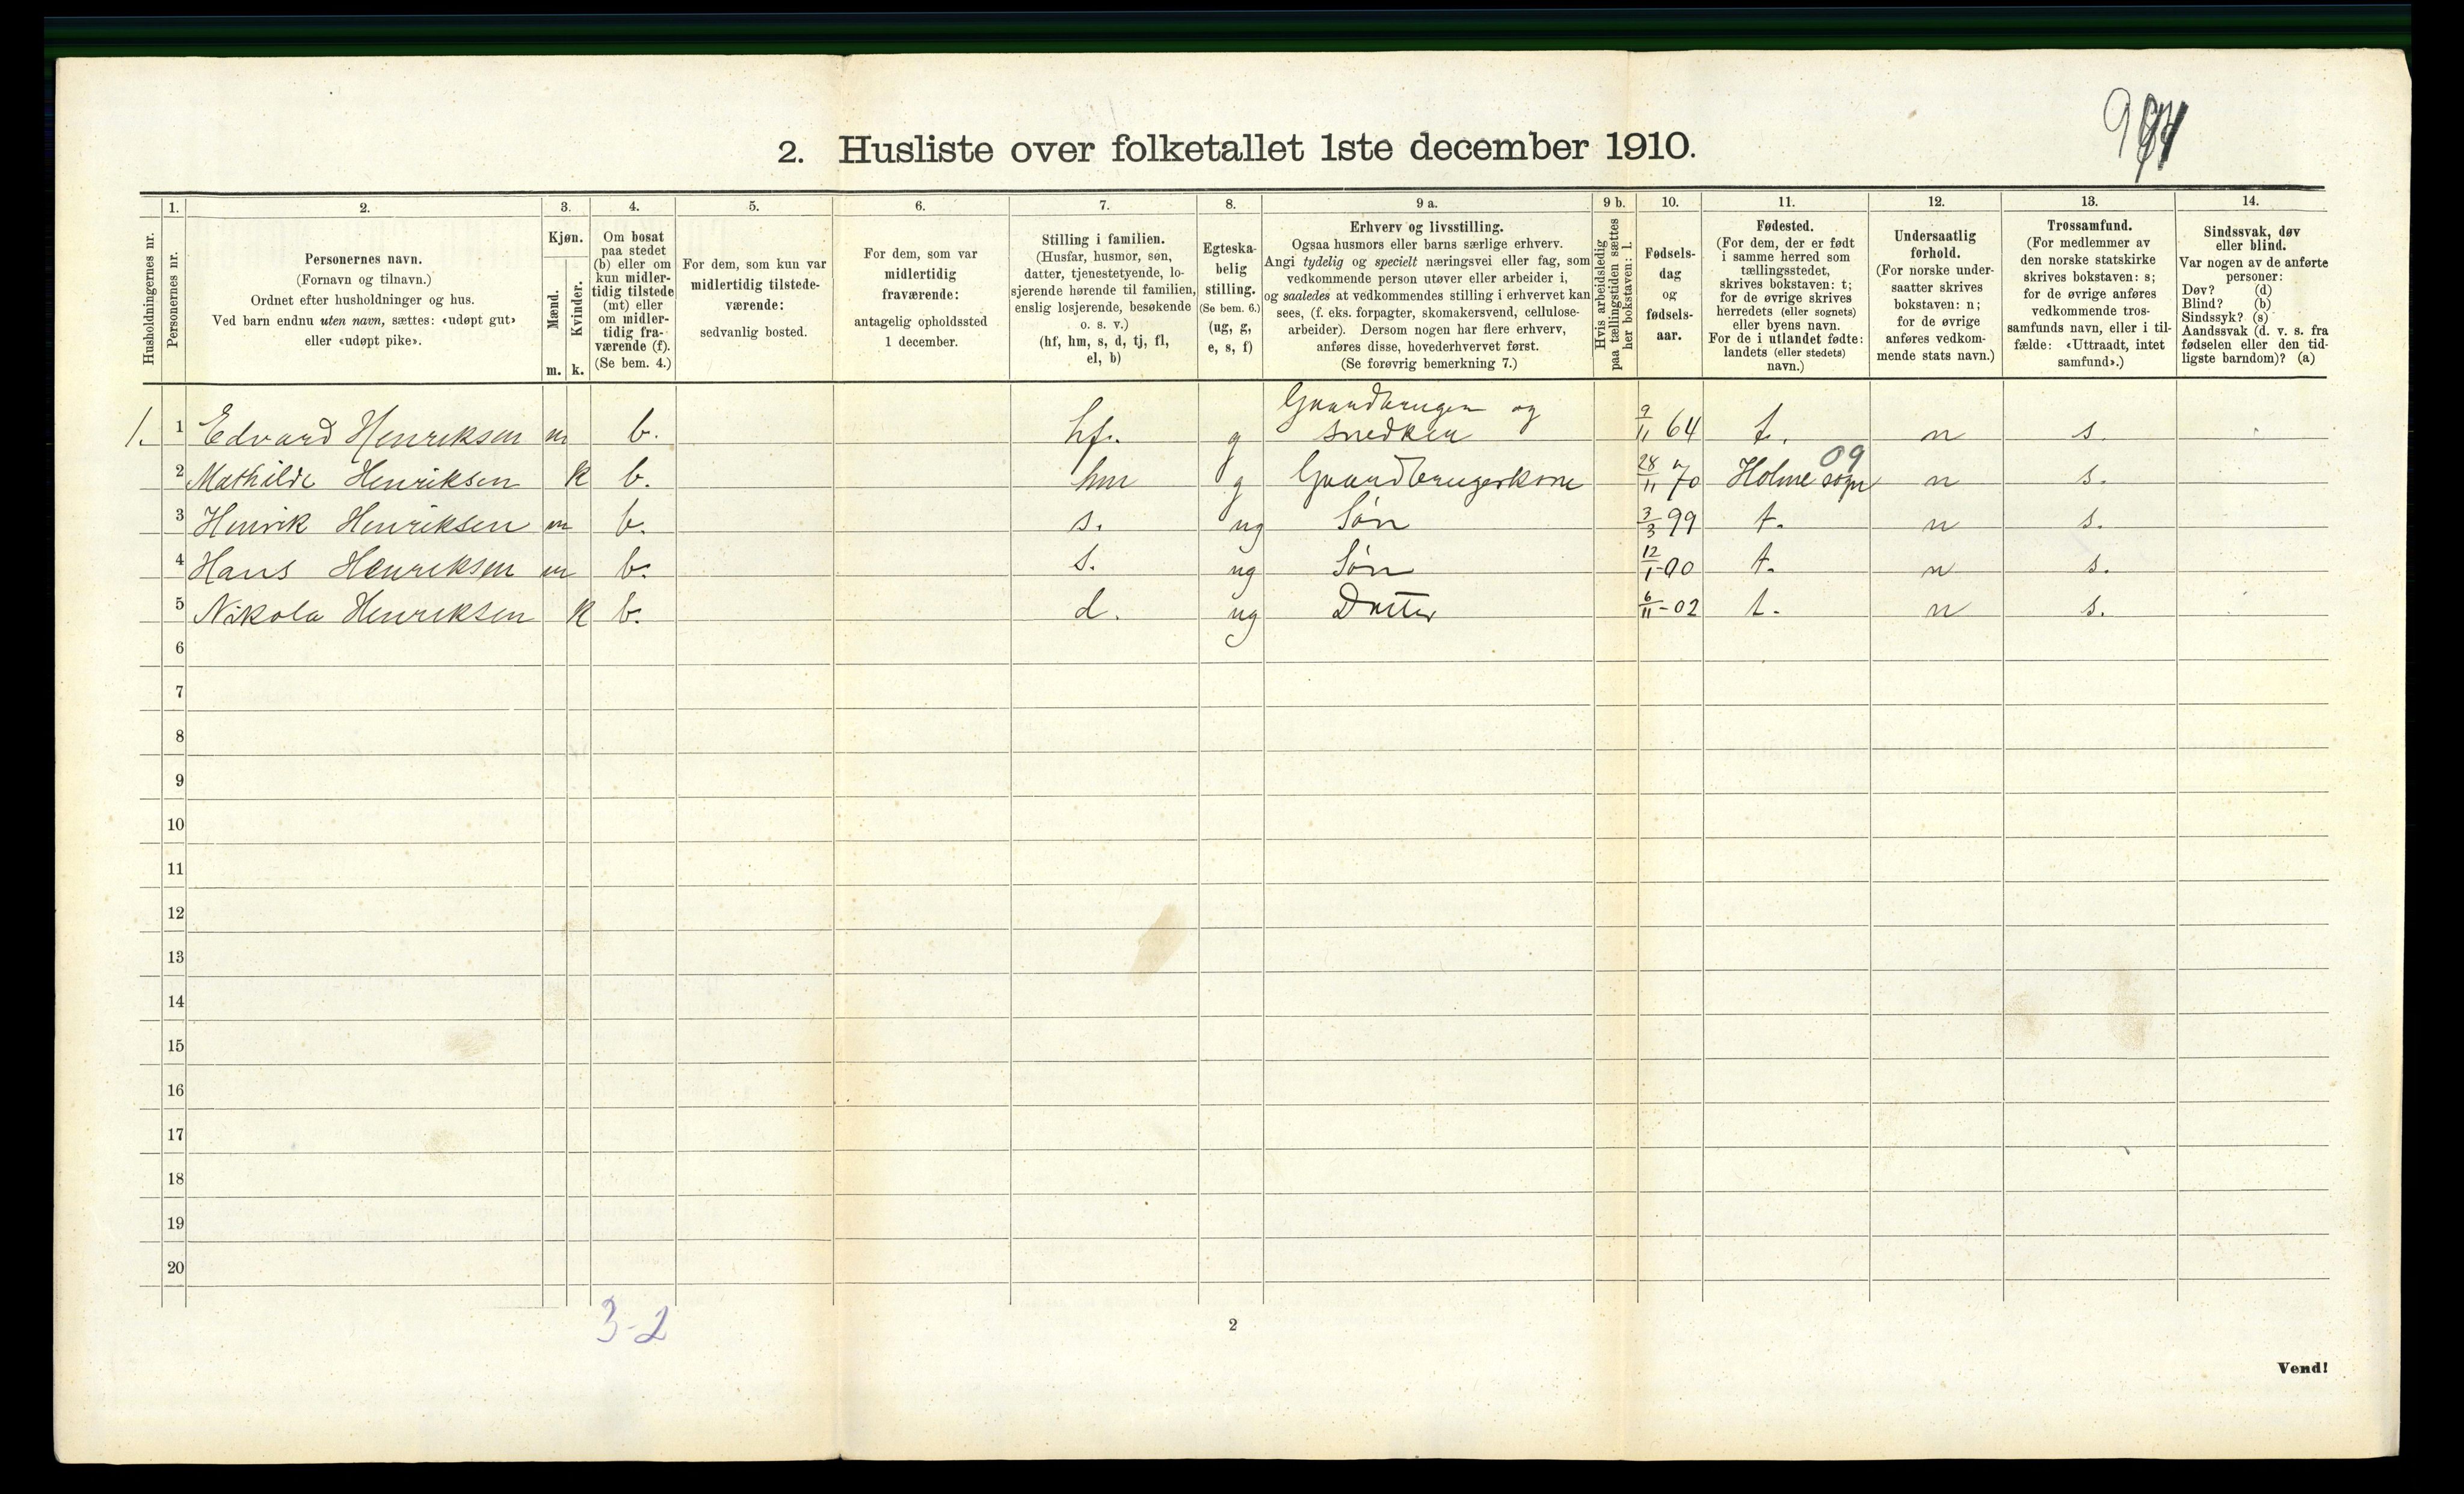 2. Husliste over folketallet 1ste december 1910.
1. 2. 3. 4. 5. 6. 7. 8. 9 a. 9 b. 10. 11. 12. 13. 14.
Husholdningernes nr.
Personernes nr.
Personernes navn.
(Fornavn og tilnavn.)
Ordnet efter husholdninger og hus.
Ved barn endnu uten navn, sættes: «udøpt gut»
eller «udøpt pike».
Kjøn.
Mænd.
Kvinder.
m. k.
Om bosat
paa stedet
(b) eller om
kun midler-
tidig tilstede
(mt) eller
om midler-
tidig fra-
værende (f).
(Se bem. 4.)
For dem, som kun var
midlertidig tilstede-
værende:
sedvanlig bosted.
For dem, som var
midlertidig
fraværende:
antagelig opholdssted
1 december.
Stilling i familien.
(Husfar, husmor, søn,
datter, tjenestetyende, lo-
sjerende hørende til familien,
enslig losjerende, besøkende
o. s. v.)
(hf, hm, s, d, tj, fl,
el, b)
Egteska-
belig
stilling.
(Se bem. 6.)
(ug, g,
e, s, f)
Erhverv og livsstilling.
Ogsaa husmors eller barns særlige erhverv.
Angi tydelig og specielt næringsvei eller fag, som
vedkommende person utøver eller arbeider i,
og saaledes at vedkommendes stilling i erhvervet kan
sees, (f. eks. forpagter, skomakersvend, cellulose-
arbeider). Dersom nogen har flere erhverv,
anføres disse, hovederhvervet først.
(Se forøvrig bemerkning 7.)
Hvis arbeidsledig
paa tællingstiden sættes
her bokstaven: l.
Fødsels-
dag
og
fødsels-
aar.
Fødested.
(For dem, der er født
i samme herred som
tællingsstedet,
skrives bokstaven: t;
for de øvrige skrives
herredets (eller sognets)
eller byens navn.
For de i utlandet fødte:
landets (eller stedets)
navn.)
Undersaatlig
forhold.
(For norske under-
saatter skrives
bokstaven: n;
for de øvrige
anføres vedkom-
mende stats navn.)
Trossamfund.
(For medlemmer av
den norske statskirke
skrives bokstaven: s;
for de øvrige anføres
vedkommende tros-
samfunds navn, eller i til-
fælde: «Uttraadt, intet
samfund».)
Sindssvak, døv
eller blind.
Var nogen av de anførte
personer:
Døv? (d)
Blind? (b)
Sindssyk? (s)
Aandssvak (d. v. s. fra
fødselen eller den tid-
ligste barndom)? (a)
Gaardbruger og
1. 1 Edvard Henriksen m b. hf. g snedker 9/11 64 t. n s.
09
2 Mathilde Henriksen k b. hm g Gaardbrugerkone 28/11 70 Holme sogn n s.
3 Henrik Henriksen m b. s. ug Søn 3/3 99 t. n s.
4 Hans Henriksen m b. s. ug Søn 12/1-00 t. n s.
5 Nikola Henriksen k b. d. ug Datter 6/11-02 t. n s.
6
7
8
9
10
11
12
13
14
15
16
17
18
19
20
3-2
2
Vend!